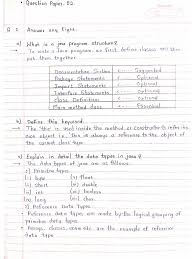 Question Paper: 02
Q 1 Answer any Eight.
a) What is a java program structure?
→ To write a Java program, we first define classes and then put them together
Documentation Section ← Suggested
Package Statement ← Optional
Import Statements ← Optional
Interface Statements ← Optional
Class Definitions ← Optional
Main Method class ← Essential
b) Define this keyword.
→ The 'this' is used inside the method or constructor to refer its own object i.e., this is always a reference to the object of the current class type.
c) Explain in detail the data types in java?
→ The data types of Java are as follows:
1) Primitive types
i) byte v) float
ii) short vi) double
iii) int vii) boolean
iv) long viii) char
2) Reference Data Types
• Reference data types are made by the logical grouping of primitive data types.
• Arrays, classes, are the example of reference data type